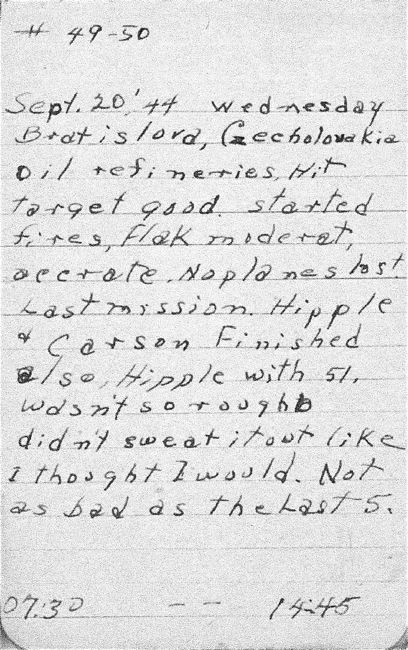 # 49-50
Sept. 20,'44 Wednesday
Bratislava, Czecholovakia
oil refineries, Hit
target good. started
fires, Flak moderat,
accrate. No planes lost.
Last mission. Hipple
& Carson Finished
also, Hipple with 51.
Wasn't so rough
didn't sweat it out like
I thought I would. Not
as bad as the Last 5.
07:30 -- 14:45